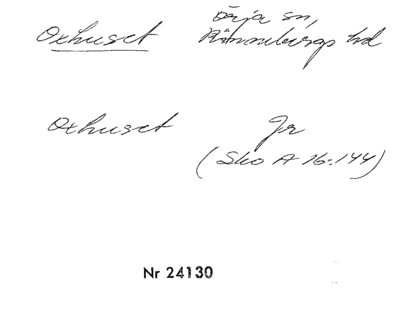 Oxhuset Börja sn,
Rönnebergs hd
Oxhuset Jr
(Sko A 16:144)
Nr 24130